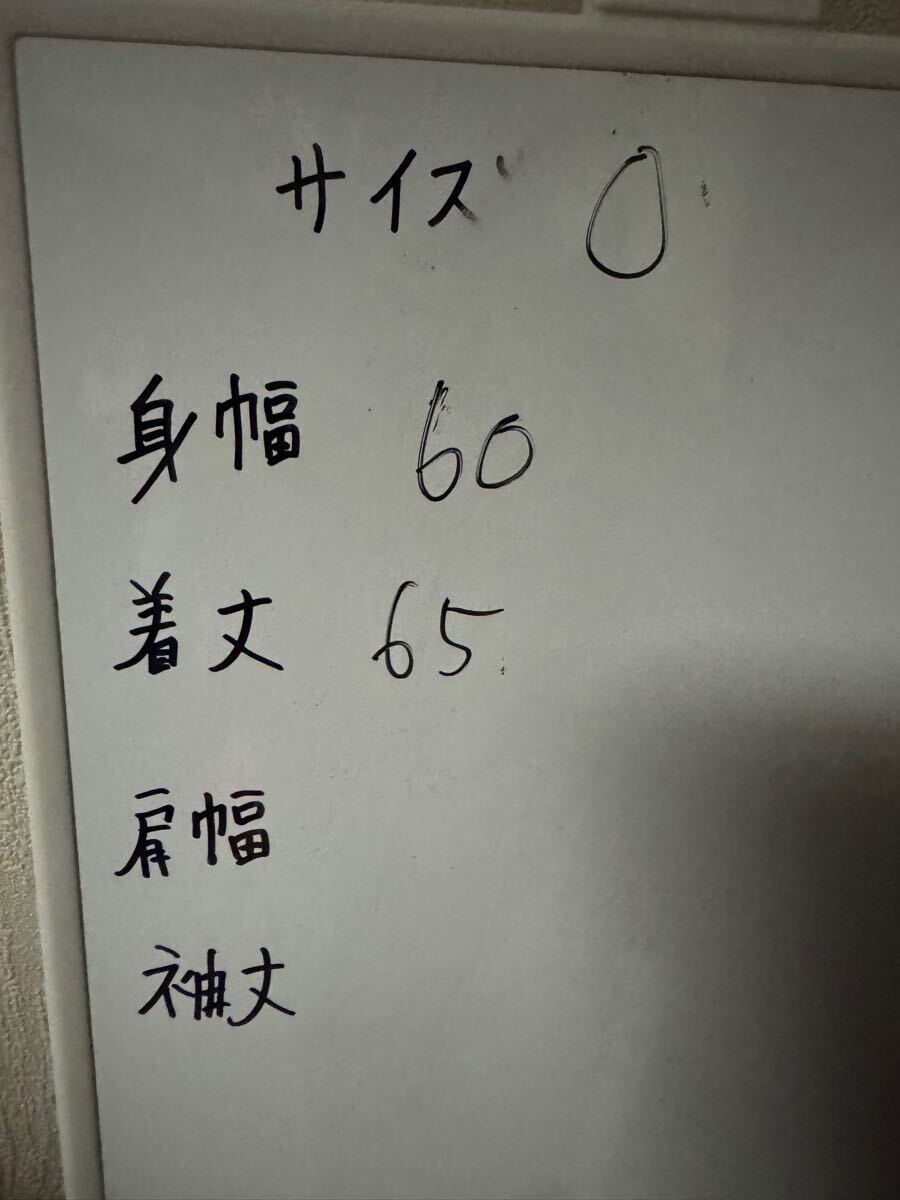 サイズ 0
身幅 60
着丈 65
肩幅
袖丈